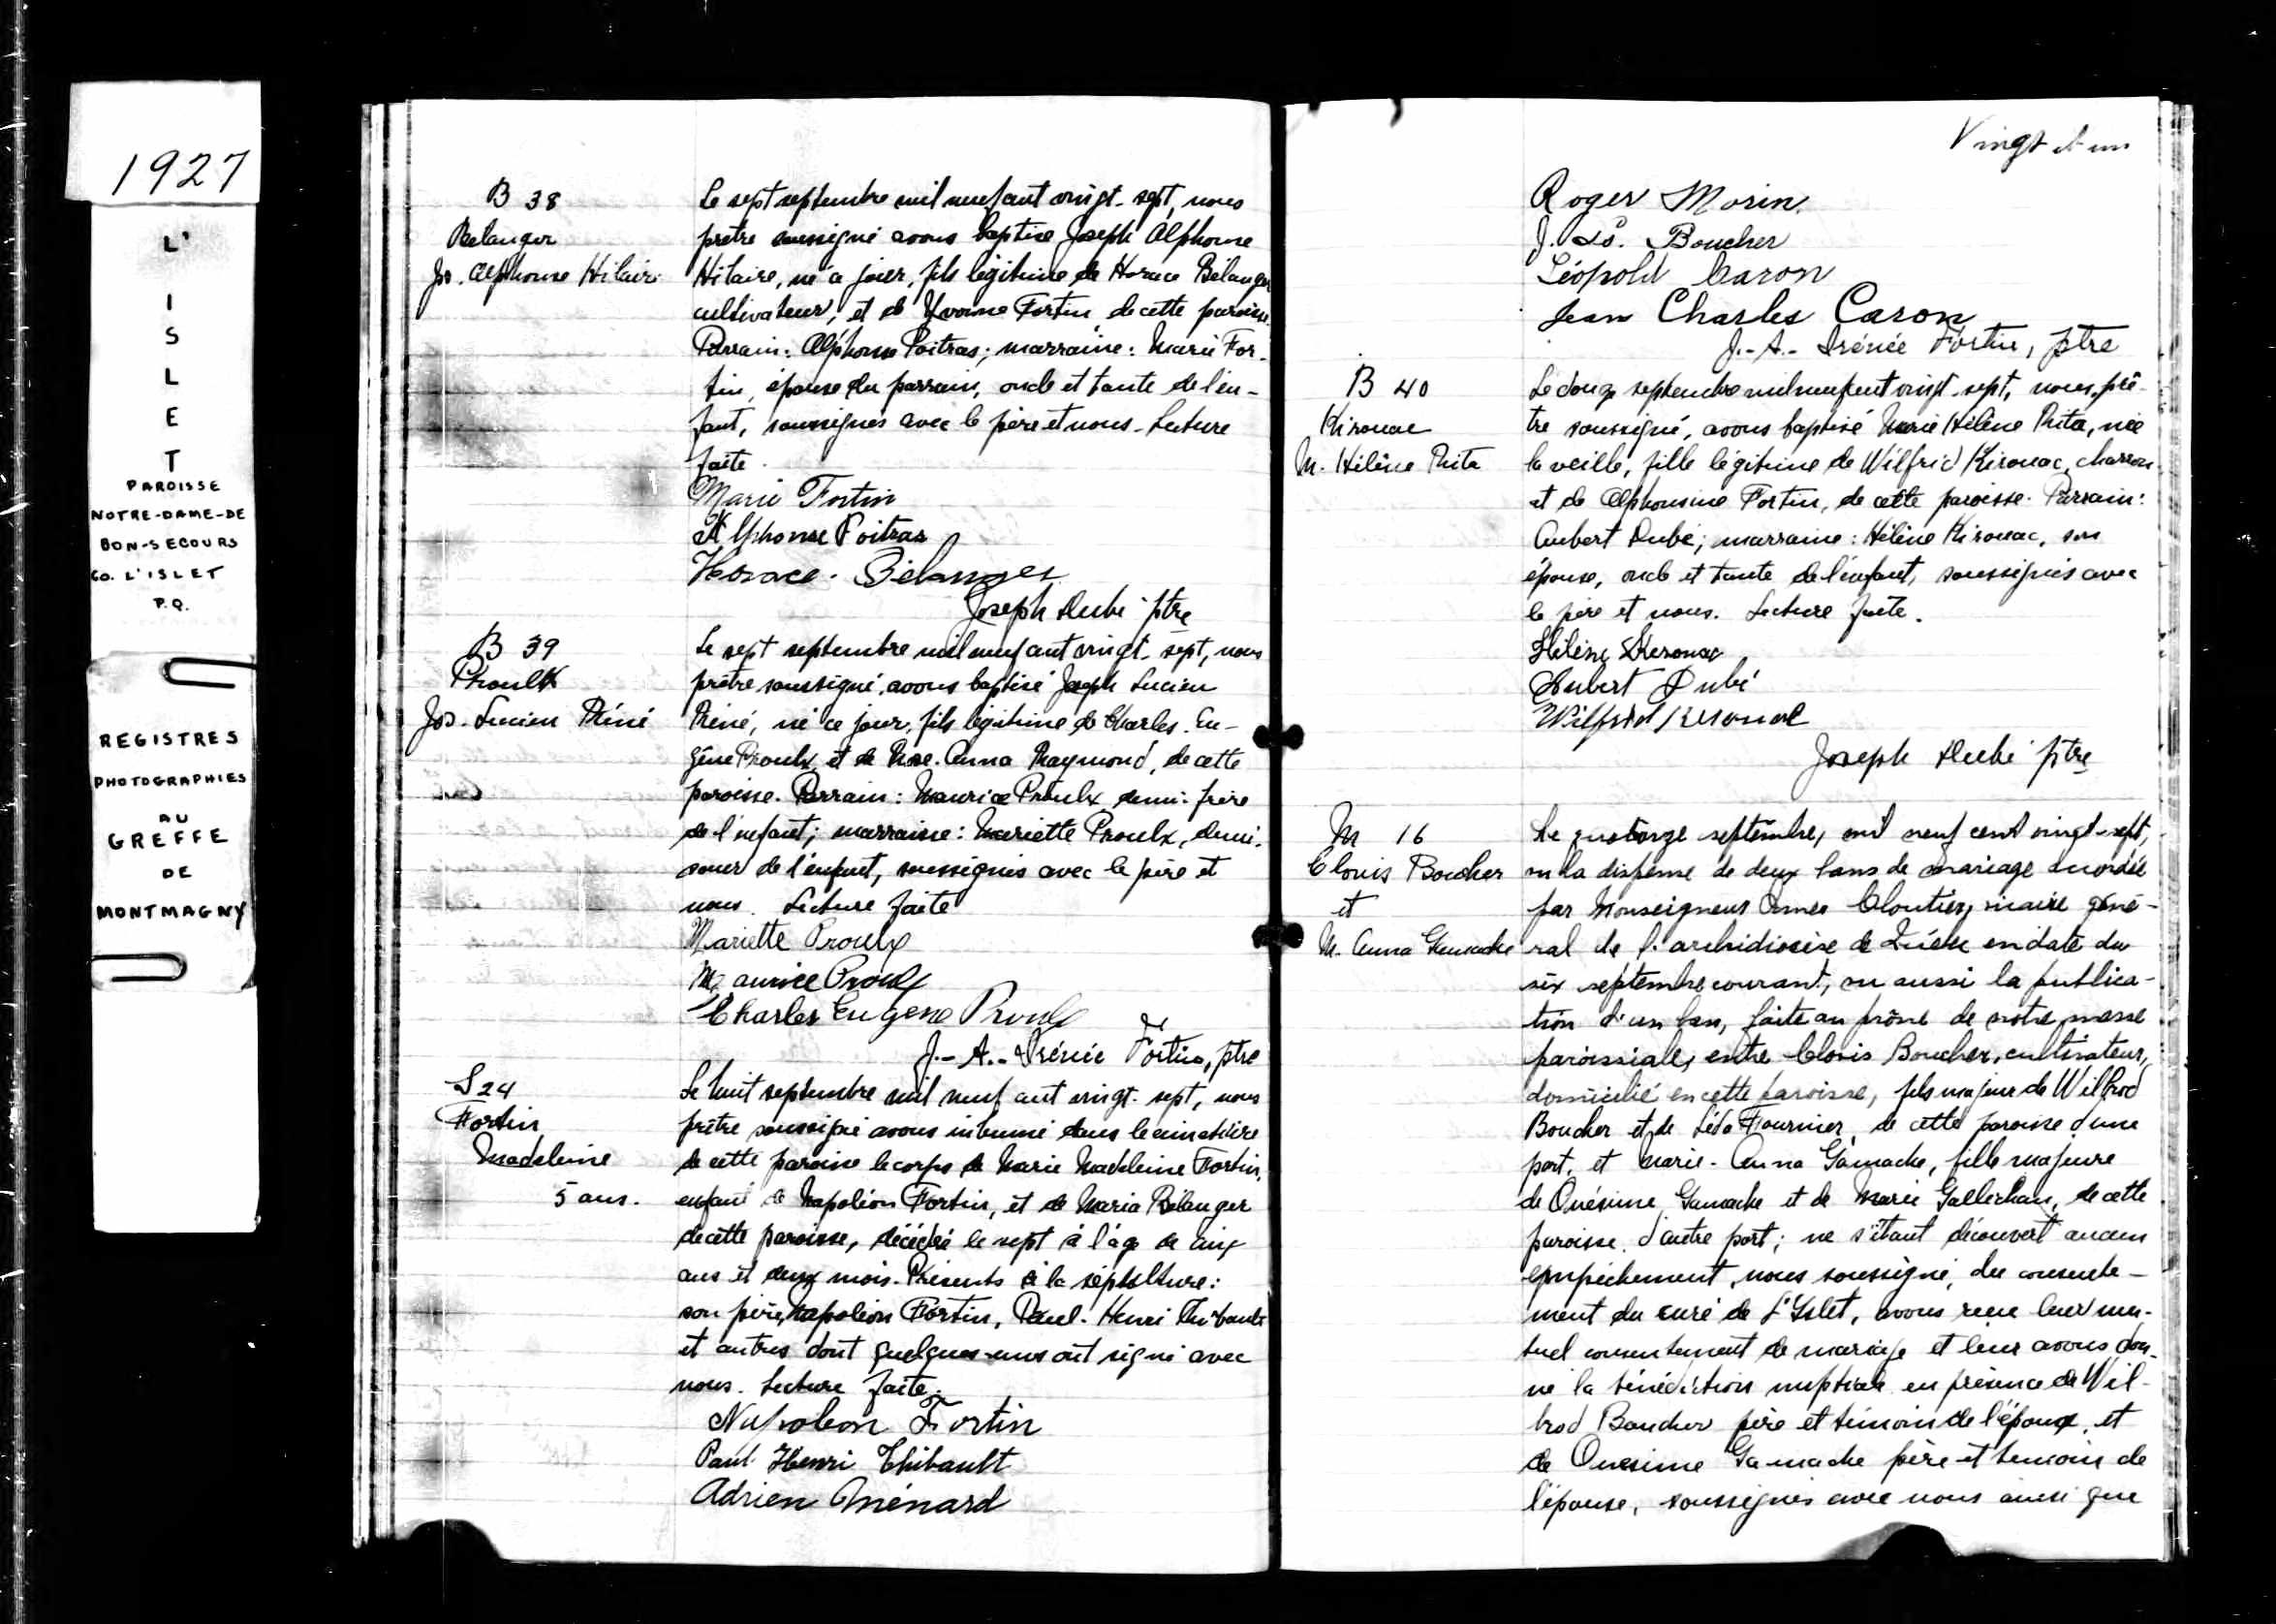 1927
L'
I
S
L
E
T
PAROISSE
NOTRE-DAME-DE
BON-SECOURS
Co. L'ISLET
P.Q.
REGISTRES
PHOTOGRAPHIES
AU
GREFFE
DE
MONTMAGNY
B 38
Belanger
Jos. Alphonse Hilaire
Le sept septembre mil neuf cent vingt-sept, nous
prêtre soussigné avons baptisé Joseph Alphonse
Hilaire, né ce jour, fils légitime de Horace Bélanger
cultivateur, et de Yvonne Fortin de cette paroisse.
Parrain: Alphonse Poitras; marraine: Marie For-
tin, épouse du parrain, oncle et tante de l'en-
fant, soussignés avec le père et nous. Lecture
faite.
Marie Fortin
Alphonse Poitras
Horace Bélanger
Joseph Dubé ptre
B 39
Proulx
Jos. Lucien Réné
Le sept septembre mil neuf cent vingt-sept, nous
prêtre soussigné, avons baptisé Joseph Lucien
Réné, né ce jour, fils légitime de Charles-Eu-
gène Proulx et de Rose-Anna Raymond, de cette
paroisse. Parrain: Maurice Proulx, demi-frère
de l'enfant; marraine: Mariette Proulx, demi-
soeur de l'enfant, soussignés avec le père et
nous. Lecture faite
Mariette Proulx
Maurice Proulx
Charles Eugene Proulx
J.-A.-Irénée Fortin, ptre
S 24
Fortin
Madeleine
5 ans.
Le huit septembre mil neuf cent vingt-sept, nous
prêtre soussigné avons inhumé dans le cimetière
de cette paroisse le corps de Marie Madeleine Fortin,
enfant de Napoléon Fortin, et de Maria Bélanger
de cette paroisse, décédée le sept à l'âge de cinq
ans et deux mois. Présents à la sépulture:
son père, Napoléon Fortin, Paul-Henri Thibault
et autres dont quelques-uns ont signé avec
nous. Lecture faite.
Napoleon Fortin
Paul Henri Thibault
Adrien Ménard
Vingt et un
Roger Morin.
J. Ls. Boucher
Léopold Caron
Jean Charles Caron
J.-A.-Irénée Fortin, ptre
B 40
Kirouac
M. Hélène Rita
Le douze septembre mil neuf cent vingt-sept, nous, prê-
tre soussigné, avons baptisé Marie Hélène Rita, née
la veille, fille légitime de Wilfrid Kirouac, charron
et de Alphonsine Fortin, de cette paroisse. Parrain:
Aubert Dubé; marraine: Hélène Kirouac, son
épouse, oncle et tante de l'enfant, soussignés avec
le père et nous. Lecture faite.
Hélène Kerouac
Aubert Dubé
Wilfrid Kerouac
Joseph Dubé ptre
M 16
Clovis Boucher
et
M. Anna Gamache
Le quatorze septembre, mil neuf cent vingt-sept,
vu la dispense de deux bans de mariage accordée
par Monseigneur Omer Cloutier, vicaire géné-
ral de l'archidiocèse de Québec en date du
six septembre courant, vu aussi la publica-
tion d'un ban, faite au prône de notre messe
paroissiale, entre Clovis Boucher, cultivateur,
domicilié en cette paroisse, fils majeur de Wilbrod
Boucher et de Léda Fournier, de cette paroisse d'une
part, et Marie-Anna Gamache, fille majeure
de Onésime Gamache et de Marie Gallichan, de cette
paroisse, d'autre part; ne s'étant découvert aucun
empêchement, nous soussigné, du consente-
ment du curé de L'Islet, avons reçu leur mu-
tuel consentement de mariage et leur avons don-
né la bénédiction nuptiale en présence de Wil-
brod Boucher père et témoin de l'époux, et
de Onesime Gamache père et témoin de
l'épouse, soussignés avec nous ainsi que